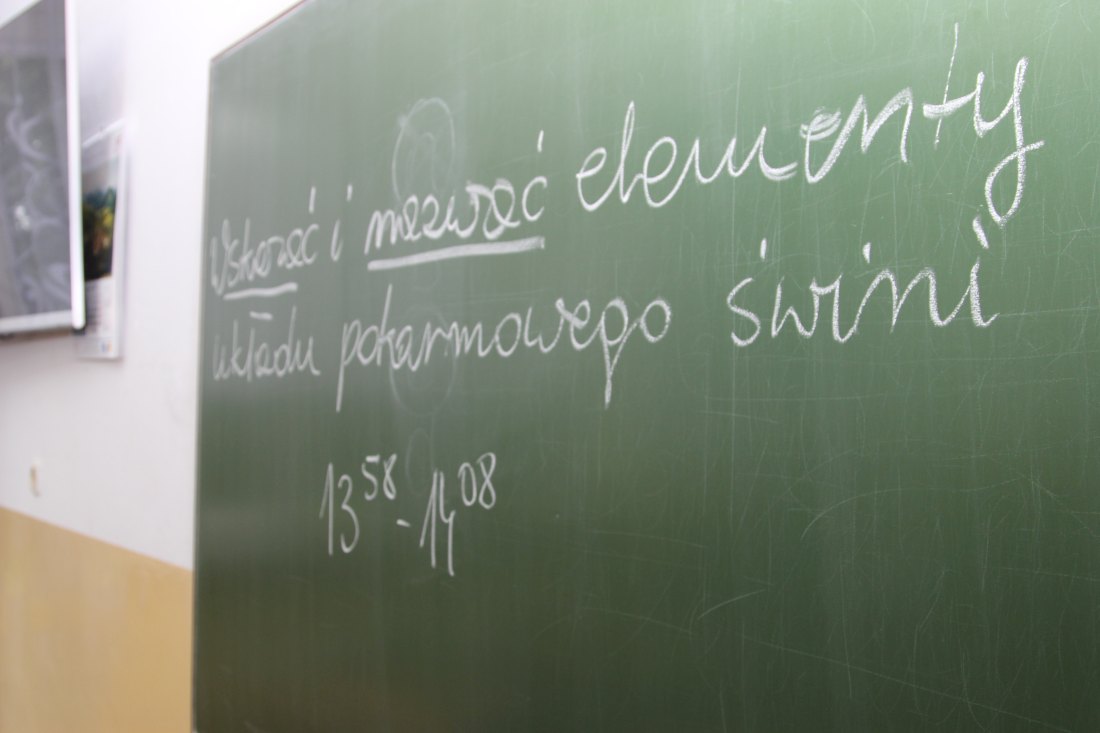 Wskazać i nazwać elementy
układu pokarmowego świni
13⁵⁸ - 14⁰⁸